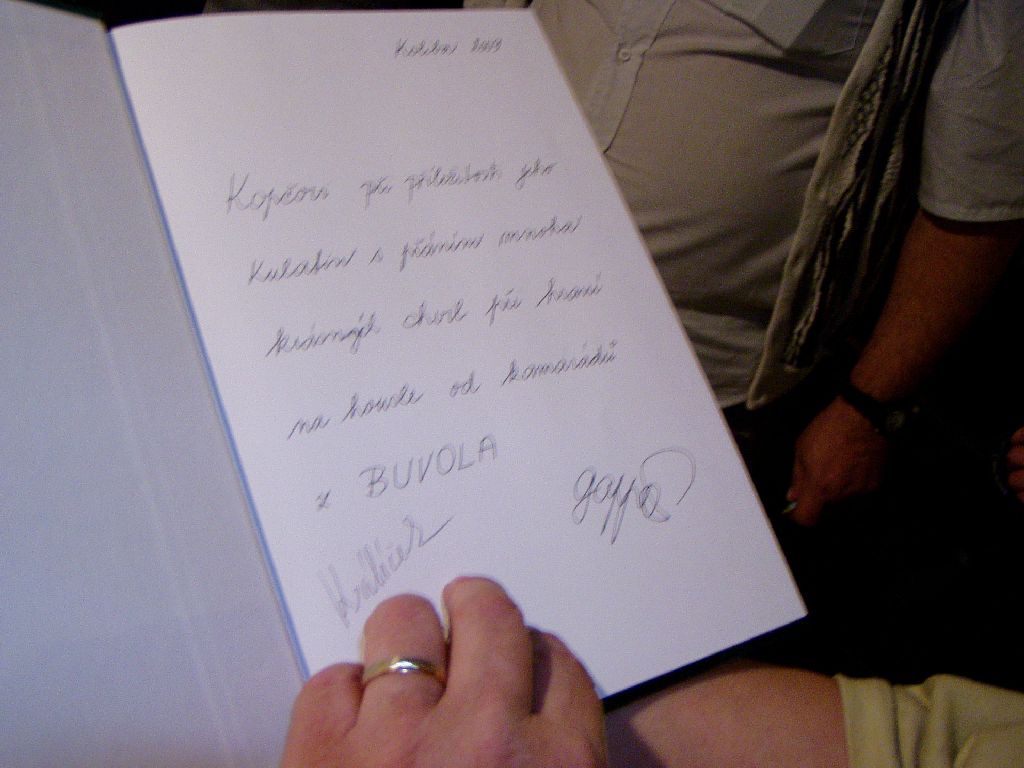 Kopčovi při příležitosti jeho
Kulatin s přáním mnoha
krásných chvil při hraní
na housle od kamarádů
z BUVOLA
Králíček